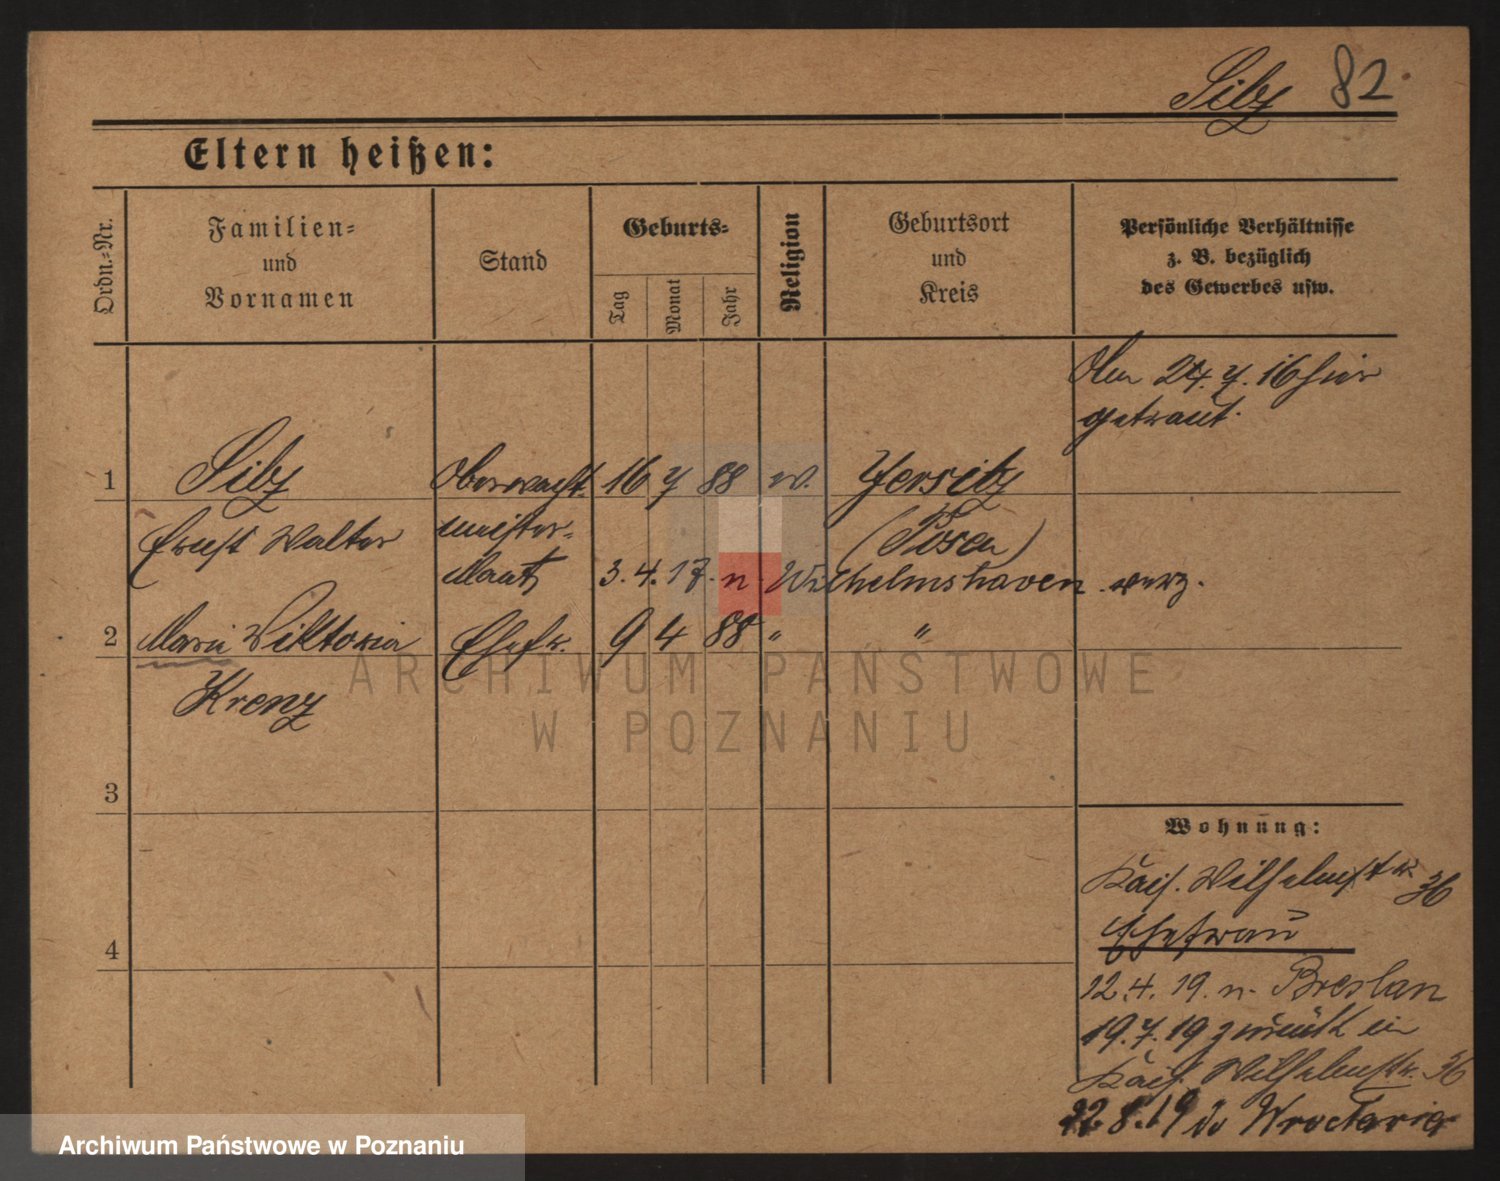 Silz 82
Eltern heißen:
Ordn.-Nr.
Familien-
und
Vornamen
Stand
Geburts-
Tag
Monat
Jahr
Religion
Geburtsort
und
Kreis
Persönliche Verhältnisse
z. B. bezüglich
des Gewerbes usw.
Am 24. 7. 16 hier
getraut.
1 Silz Oberwacht 16 7 88 ev. Jersitz
Ernst Walter meister- (Posen)
Maat 3. 4. 17. n. Wilhelmshaven verz.
2 Marie Viktoria Ehefr. 9 4 88 " "
Krenz
ARCHIWUM PAŃSTWOWE
W POZNANIU
3
Wohnung:
Kais. Wilhelmstr. 36
Ehefrau
4
12. 4. 19. n. Breslau
19. 7. 19 zurück in
Kais. Wilhelmstr. 36
22. 8. 19 do Wrocławia
Archiwum Państwowe w Poznaniu